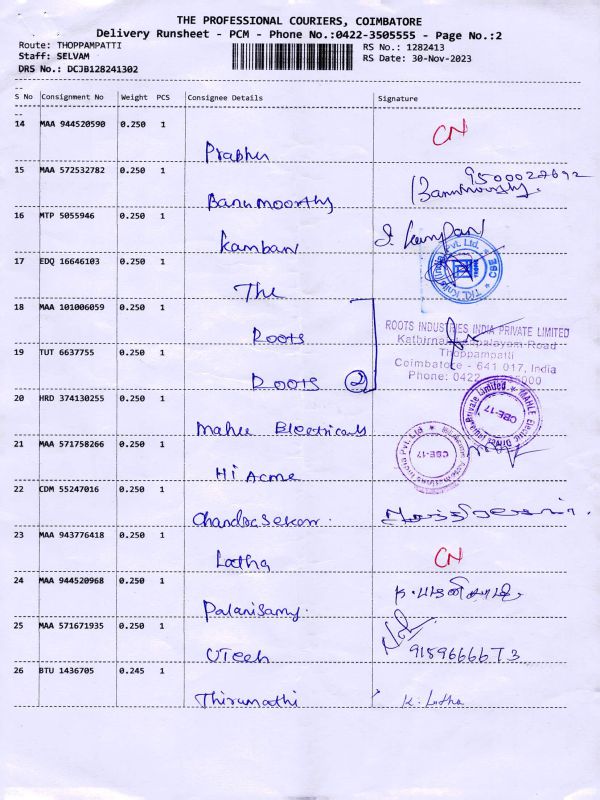 THE PROFESSIONAL COURIERS, COIMBATORE
Delivery Runsheet - PCM - Phone No.:0422-3505555 - Page No.:2
Route: THOPPAMPATTI RS No.: 1282413
Staff: SELVAM RS Date: 30-Nov-2023
DRS No.: DCJB128241302
S No Consignment No Weight PCS Consignee Details Signature
14 MAA 944520590 0.250 1 CN
Prabhu
15 MAA 572532782 0.250 1
Banumoorthy
16 MTP 5055946 0.250 1
Kamban
17 EDQ 16646103 0.250 1
The
18 MAA 101006059 0.250 1
Roots
ROOTS INDUSTRIES INDIA PRIVATE LIMITED
19 TUT 6637755 0.250 1
Thoppampatti
Coimbatore - 641 017, India
Roots 2
20 HRD 374130255 0.250 1
Mahle Electricals
21 MAA 571758266 0.250 1
CBE-17
CBE-17
Hi Acme
22 CDM 55247016 0.250 1
Chandrasekar
23 MAA 943776418 0.250 1 CN
Latha
24 MAA 944520968 0.250 1
Palanisamy.
25 MAA 571671935 0.250 1
UTech 9159666673
26 BTU 1436705 0.245 1
Thirumathi K. Latha